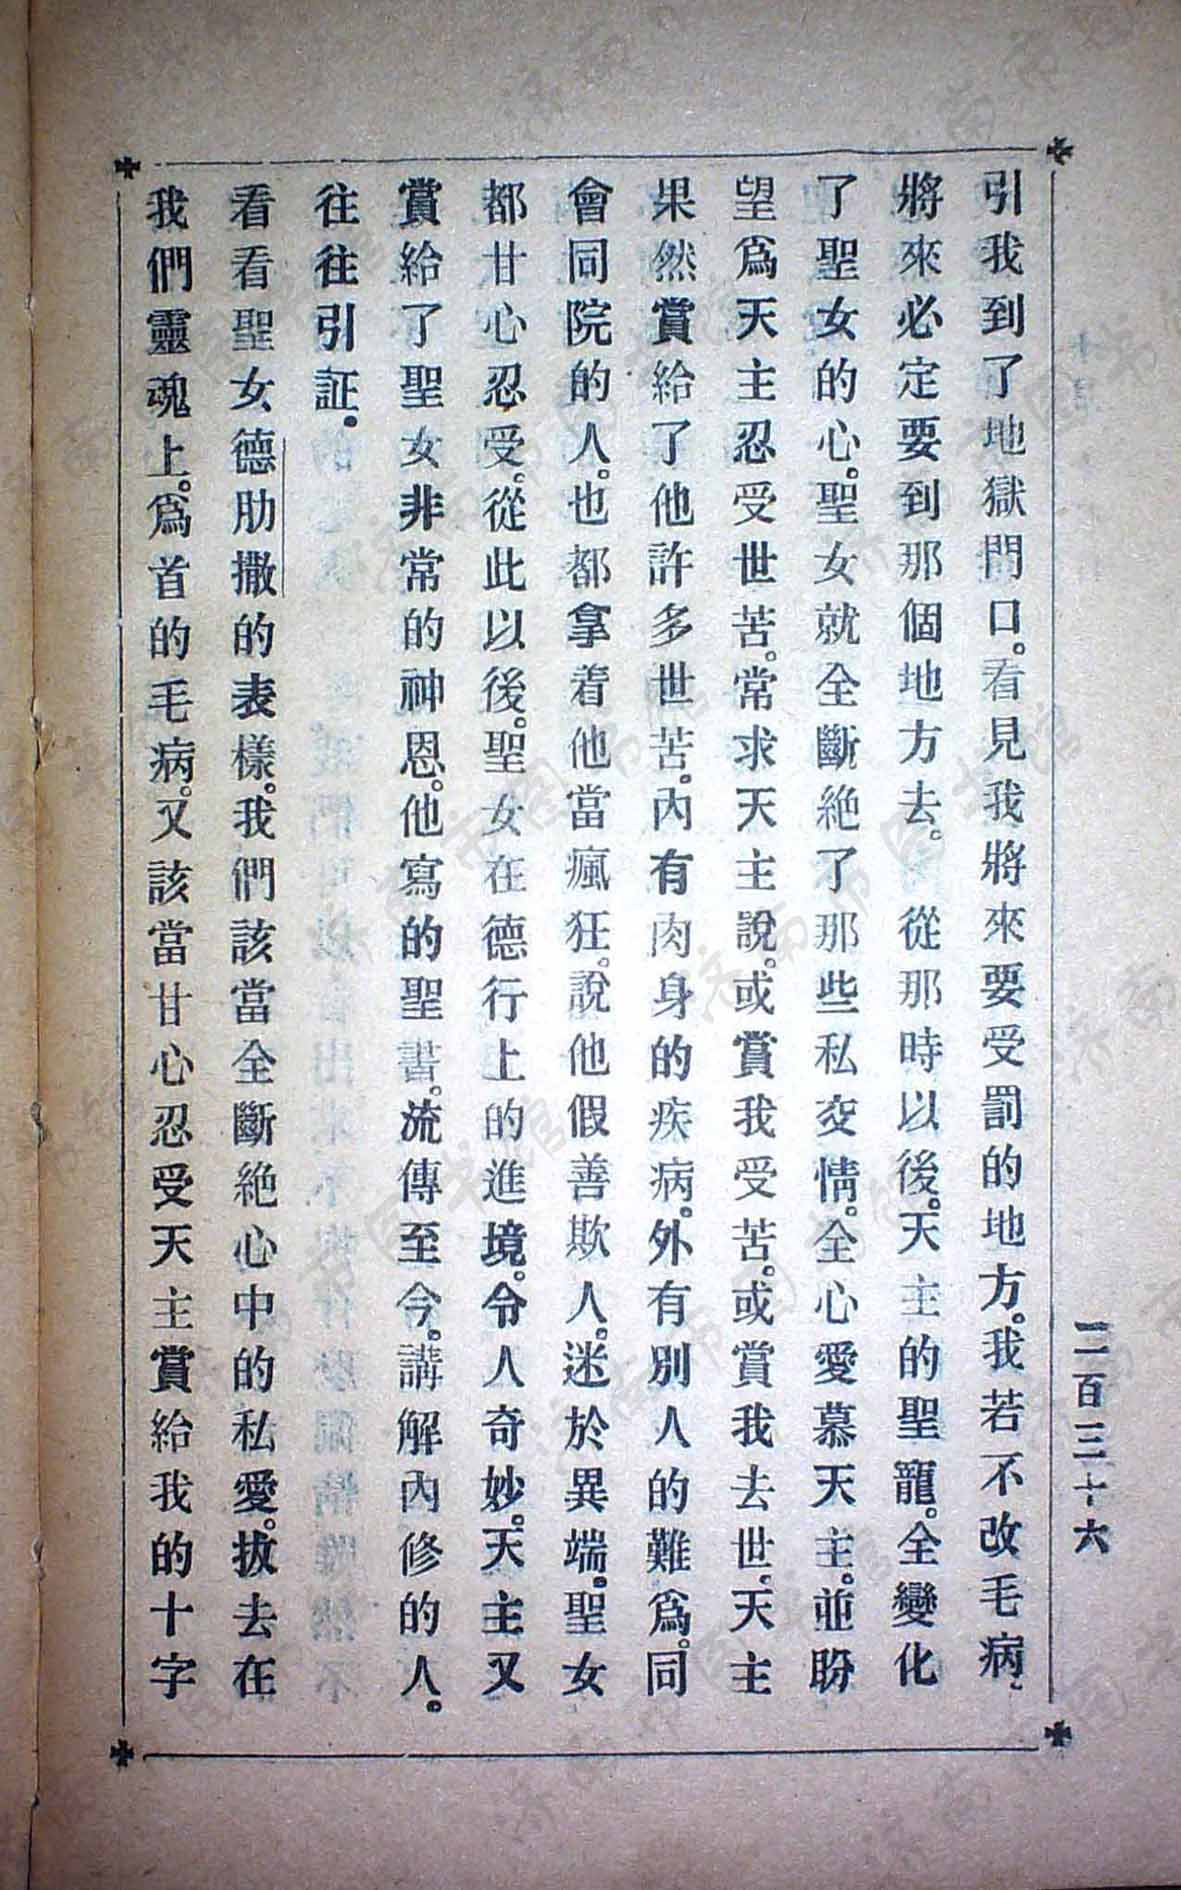 引我到了地獄門口。看見我將來要受罰的地方。我若不改毛病、
將來必定要到那個地方去。從那時以後。天主的聖寵。全變化
了聖女的心。聖女就全斷絕了那些私交情。全心愛慕天主。並盼
望爲天主忍受世苦。常求天主說。或賞我受苦。或賞我去世、天主
果然賞給了他許多世苦。內有肉身的疾病。外有別人的難爲。同
會同院的人。也都拿着他當瘋狂。說他假善欺人。迷於異端。聖女
都甘心忍受。從此以後。聖女在德行上的進境。令人奇妙。天主又
賞給了聖女非常的神恩。他寫的聖書。流傳至今。講解內修的人。
往往引証。
看看聖女德肋撒的表樣。我們該當全斷絕心中的私愛。拔去在
我們靈魂上。爲首的毛病。又該當甘心忍受天主賞給我的十字
二百三十六
济南市图书馆